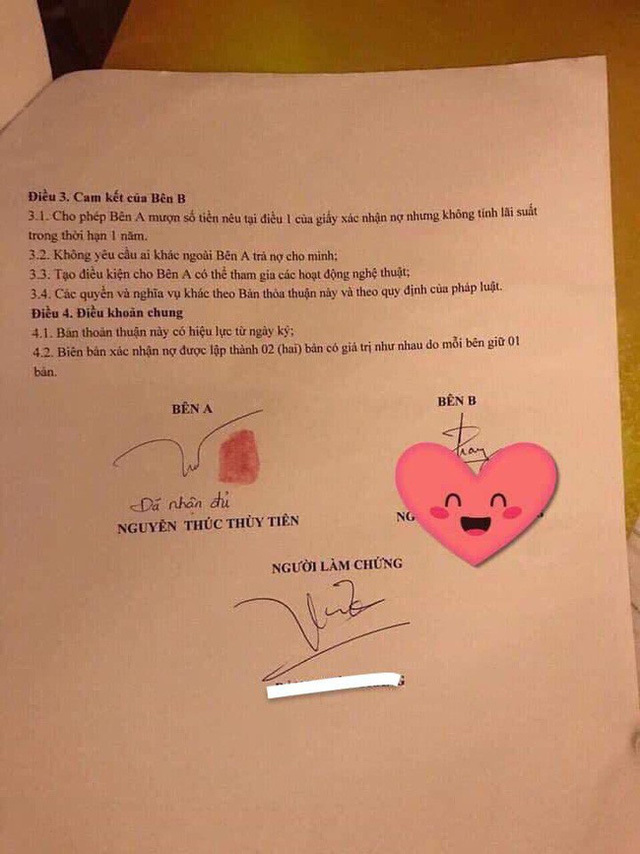 Điều 3. Cam kết của Bên B
3.1. Cho phép Bên A mượn số tiền nêu tại điều 1 của giấy xác nhận nợ nhưng không tính lãi suất
trong thời hạn 1 năm.
3.2. Không yêu cầu ai khác ngoài Bên A trả nợ cho mình;
3.3. Tạo điều kiện cho Bên A có thể tham gia các hoạt động nghệ thuật;
3.4. Các quyền và nghĩa vụ khác theo Bản thỏa thuận này và theo quy định của pháp luật.
Điều 4. Điều khoản chung
4.1. Bản thoản thuận này có hiệu lực từ ngày ký;
4.2. Biên bản xác nhận nợ được lập thành 02 (hai) bản có giá trị như nhau do mỗi bên giữ 01
bản.
BÊN A
BÊN B
Đã nhận đủ
NGUYỄN THÚC THÙY TIÊN
NG
NGƯỜI LÀM CHỨNG